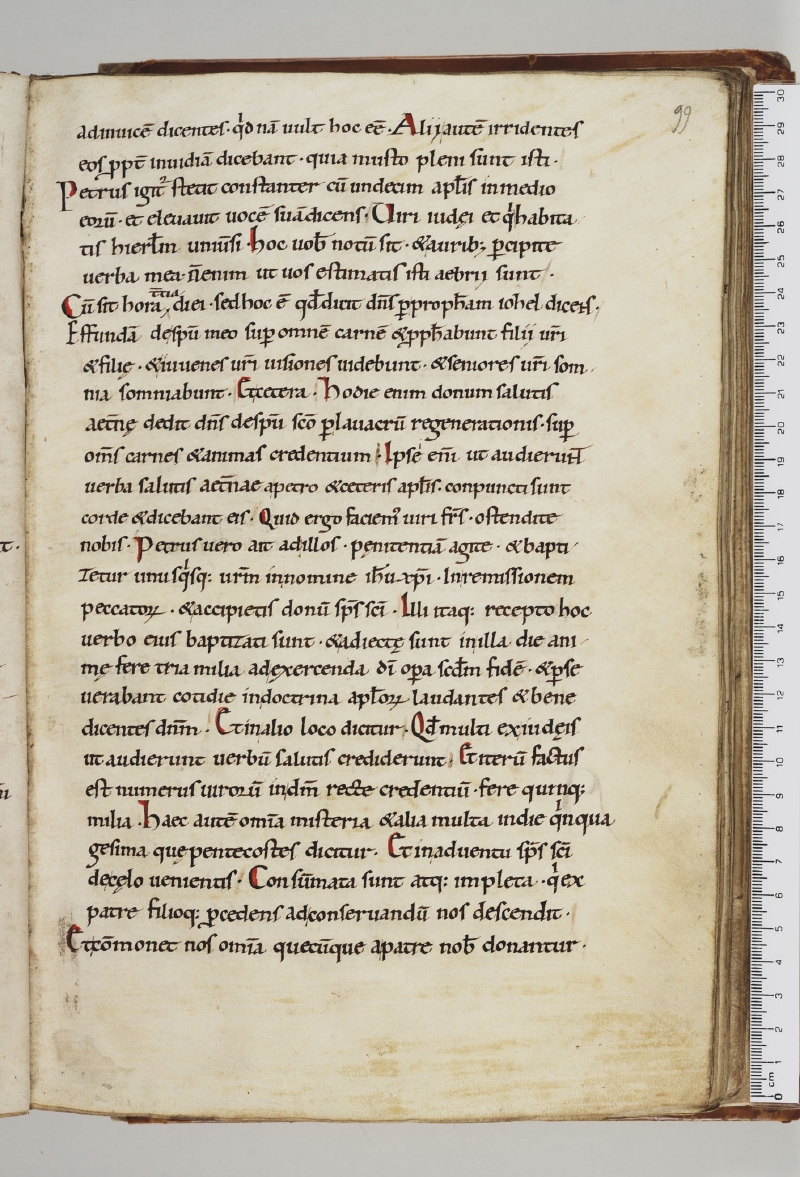 99
adinuicē dicentes · qđ nā uult hoc eē · Alij autē irridentes
eos ꝓpt̄ inuidiā dicebant · quia musto pleni sunt isti ·
Petrus igit᷑ stetit constanter cū undecim aplīs inmedio
eorū · et eleuauit uocē suā dicens · Uiri iudęi et q̇ habita
tis hierłm uniūsi · hoc uob̄ notū sit · & aurib; ꝑcipite
uerba mea · n̄ enim ut uos estimatis isti aebrii sunt ·
Cū sit hora tt̄ia diei · sed hoc ē qđ dicit dn̄s ꝑ proph̄am iohel dicēs ·
Effundā despū meo suꝑ omnē carnē & ꝓph̄abunt filij ur̄i
& filię · & iuuenes ur̄i uisiones uidebunt · & seniores ur̄i som
nia somniabunt · Et cetera · Hodie enim donum salutis
aet̄nę dedit dn̄s despū sc̄o ꝑ lauacrū regenerationis · suꝑ
om̄s carnes & animas credentium · Ipse em̄ ut audierunt
uerba salutis aet̄nae apetro & ceteris aplīs · conpuncti sunt
corde & dicebant eis · Quid ergo faciem᷒ uiri fr̄s · ostendite
nobis · Petrus uero ait adillos · pęnitentiā agite · & bapti
zetur unusq̇sq; ur̄m innomine ihū xp̄i · Inremissionem
peccatoꝝ · & accipietis donū sp̄s sc̄i · Illi itaq; recepto hoc
uerbo eius baptizati sunt · & adiectę sunt inilla die ani
mę fere tria milia adexercenda dī oꝑa scđm fidē · & ꝑse
uerabant cotidie indoctrina apłoꝝ laudantes & bene
dicentes dn̄m · Et inalio loco dicitur · Qđ multi exiudęis
ut audierunt uerbū salutis crediderunt · Et iterū factus
est numerus uirorū indn̄m recte credentiū · fere quinq;
milia · Haec autē omīa misteria & alia multa indie q̇nqua
gesima quę pentecostes dicitur · Et inaduentu sp̄s sc̄i
decęlo uenientis · Consūmata sunt atq; impleta · q̇ ex
patre filioq; ꝓcedens adconseruandū nos descendit ·
Et cōmonet nos omīa quecūque apatre nob̄ donantur ·